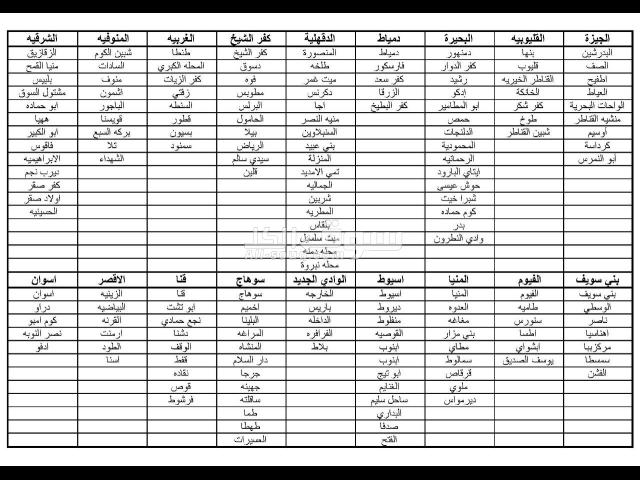 الجيزة القليوبيه البحيرة دمياط الدقهلية كفر الشيخ الغربيه المنوفيه الشرقيه
البدرشين بنها دمنهور دمياط المنصورة كفر الشيخ طنطا شبين الكوم الزقازيق
الصف قليوب كفر الدوار فارسكور طلخه دسوق المحله الكبري السادات منيا القمح
اطفيح القناطر الخيريه رشيد كفر سعد ميت غمر فوه كفر الزيات منوف بلبيس
العياط الخانكة إدكو الزرقا دكرنس مطوبس زفتي اشمون مشتول السوق
الواحات البحرية كفر شكر ابو المطامير كفر البطيخ اجا البرلس السنطه الباجور ابو حماده
منشيه القناطر طوخ حمص منيه النصر الحامول قطور قويسنا ههيا
أوسيم شبين القناطر الدلنجات السنبلاوين بيلا بسيون بركه السبع ابو الكبير
كرداسة المحمودية بني عبيد الرياض سمنود تلا فاقوس
أبو النمرس الرحمانيه المنزلة سيدي سالم الشهداء الابراهيميه
ايتاي البارود تمي الامديد قلين ديرب نجم
حوش عيسى الجماليه كفر صقر
شبرا خيت شربين اولاد صقر
كوم حماده المطريه الحسينيه
بدر بلقاس
وادي النطرون ميت سلسيل
محله دمنه
محله نبروة
بني سويف الفيوم المنيا اسيوط الوادي الجديد سوهاج قنا الاقصر اسوان
بني سويف الفيوم المنيا اسيوط الخارجه سوهاج قنا الزينيه اسوان
الوسطي طاميه العدوه ديروط باريس اخميم ابو تشت البياضيه دراو
ناصر سنورس مغاغه منفلوط الداخله البلينا نجع حمادي القرنه كوم امبو
اهناسيا اطسا بني مزار القوصيه الفرافره المراغه دشنا ارمنت نصر النوبه
مركزببا أبشواي مطاي ابنوب بلاط المنشاه الوقف الطود ادفو
سمسطا يوسف الصديق سمالوط ابنوب دار السلام قفط اسنا
الفشن قرقاص ابو تيج جرجا نقاده
ملوي الغنايم جهينه قوص
ديرمواس ساحل سليم ساقلته فرشوط
البداري طما
صدفا طهطا
الفتح العسيرات